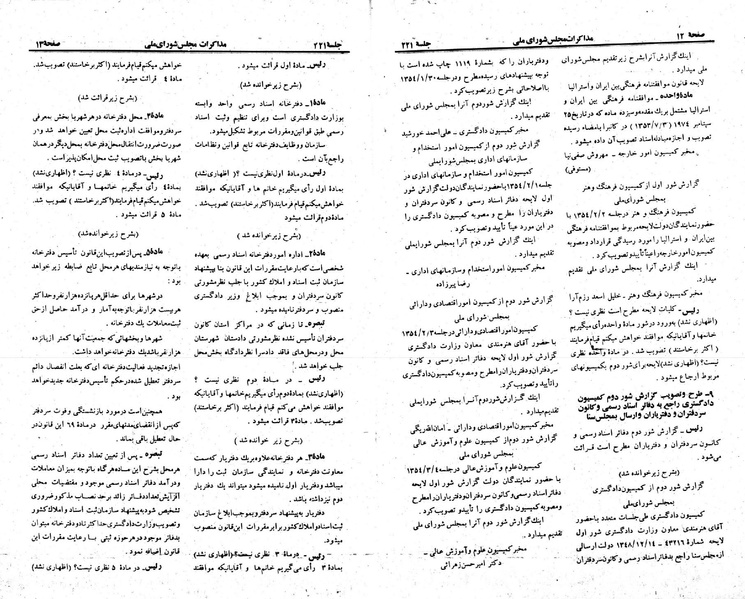 صفحهٔ ۱۲
مذاکرات مجلس شورای ملی
جلسهٔ ۲۲۱
اینک گزارش آنرا بشرح زیر تقدیم مجلس شورای
ملی میدارد.
لایحه قانون موافقتنامه فرهنگی بین ایران و استرالیا
مادهٔ واحده ـ موافقتنامه فرهنگی بین ایران و
استرالیا مشتمل بریک مقدمه و سیزده ماده که در تاریخ ۲۵
سپتامبر ۱۹۷۴ (۱۳۵۳/۷/۳) در کانبرا بامضاء رسیده
تصویب و اجازه مبادله اسناد تصویب آن داده میشود.
مخبر کمیسیون امور خارجه ـ مهروش صفی‌نیا
(مستوفی)
گزارش شور اول از کمیسیون فرهنگ و هنر
بمجلس شورای ملی
کمیسیون فرهنگ و هنر در جلسه ۱۳۵۴/۲/۲ با
حضور نمایندگان دولت لایحه مربوط بموافقتنامه فرهنگی
بین ایران و استرالیا را مورد رسیدگی قرارداد و مصوبه
کمیسیون امور خارجه را عیناً تأیید و تصویب کرد.
اینک گزارش آنرا بمجلس شورای ملی تقدیم
میدارد.
مخبر کمیسیون فرهنگ و هنر ـ خلیل اسعد رزم‌آرا
رئیس ـ کلیات لایحه مطرح است نظری نیست؟
(اظهاری نشد) بورود در شور مادهٔ واحده رأی میگیریم
خانمها و آقایانیکه موافقند خواهش میکنم قیام فرمایند
(اکثر برخاستند) تصویب شد. در مادهٔ واحده نظری
نیست؟ (اظهاری نشد) لایحه برای شور دوم بکمیسیونهای
مربوط ارجاع میشود.
۹ـ طرح و تصویب گزارش شور دوم کمیسیون
دادگستری راجع به دفاتر اسناد رسمی و کانون
سردفتران و دفتریاران و ارسال بمجلس سنا
رئیس ـ گزارش شور دوم دفاتر اسناد رسمی و
کانون سردفتران و دفتریاران مطرح است قرائت
می‌شود.
(بشرح زیر خوانده شد)
گزارش شور دوم از کمیسیون دادگستری
بمجلس شورای ملی
کمیسیون دادگستری طی جلسات متعدد با حضور
آقای هنرمندی معاون وزارت دادگستری شور دوم
لایحه شمارهٔ ۴۳۲۱۶ ـ ۱۳۴۸/۱۲/۱۴ دولت ارسالی
از مجلس سنا راجع بدفاتر اسناد رسمی و کانون سردفتران
ودفتریاران را که بشمارهٔ ۱۱۱۹ چاپ شده است با
توجه به پیشنهادهای رسیده مطرح و در جلسه ۱۳۵۴/۱/۳۰
با اصلاحاتی بشرح زیر تصویب کرد.
اینک گزارش شور دوم آنرا بمجلس شورای ملی
تقدیم میدارد.
مخبر کمیسیون دادگستری ـ علی‌احمد خورشید
گزارش شور دوم از کمیسیون امور استخدام و
سازمانهای اداری بمجلس شورایملی
کمیسیون امور استخدام و سازمانهای اداری در
جلسه ۱۳۵۴/۲/۱ با حضور نمایندگان دولت گزارش شور
اول لایحه دفاتر اسناد رسمی و کانون سردفتران و
دفتریاران را مطرح و مصوبه کمیسیون دادگستری را
در این مورد عیناً تأیید و تصویب کرد.
اینک گزارش شور دوم آنرا بمجلس شورایملی
تقدیم میدارد.
مخبر کمیسیون امور استخدام و سازمانهای اداری ـ
رضا پیرزاده
گزارش شور دوم از کمیسیون امور اقتصادی و دارائی
بمجلس شورای ملی
کمیسیون امور اقتصادی و دارائی در جلسه ۱۳۵۴/۲/۳
با حضور آقای هنرمندی معاون وزارت دادگستری
گزارش شور اول لایحه دفاتر اسناد رسمی و کانون
سردفتران و دفتریاران را مطرح و مصوبه کمیسیون دادگستری
را تأیید و تصویب کرد.
اینک گزارش شور دوم آنرا بمجلس شورایملی
تقدیم میدارد.
مخبر کمیسیون امور اقتصادی و دارائی ـ امان‌الله ریگی
گزارش شور دوم از کمیسیون علوم و آموزش عالی
بمجلس شورای ملی
کمیسیون علوم و آموزش عالی در جلسه ۱۳۵۴/۳/۴
با حضور نمایندگان دولت گزارش شور اول لایحه
دفاتر اسناد رسمی و کانون سردفتران و دفتریاران را مطرح
و مصوبه کمیسیون دادگستری را تأیید و تصویب کرد.
اینک گزارش شور دوم آنرا بمجلس شورای ملی
تقدیم میدارد.
مخبر کمیسیون علوم و آموزش عالی ـ
دکتر امیرحسن زهرائی
جلسهٔ ۲۲۱
مذاکرات مجلس شورای ملی
صفحهٔ ۱۳
رئیس ـ مادهٔ اول قرائت میشود.
(بشرح زیر خوانده شد)
مادهٔ ۱ـ دفترخانه اسناد رسمی واحد وابسته
بوزارت دادگستری است و برای تنظیم و ثبت اسناد
رسمی طبق قوانین و مقررات مربوط تشکیل میشود.
سازمان و وظایف دفترخانه تابع قوانین و نظامات
راجع آن است.
رئیس ـ در مادهٔ اول نظری نیست؟ (اظهاری نشد)
بمادهٔ اول رأی میگیریم خانم‌ها و آقایانیکه موافقند
خواهش میکنم قیام فرمایند (اکثر برخاستند) تصویب شد.
مادهٔ دوم قرائت میشود
(بشرح زیر خوانده شد)
مادهٔ ۲ـ اداره امور دفترخانه اسناد رسمی بعهده
شخصی است که با رعایت مقررات این قانون بنا بپیشنهاد
سازمان ثبت اسناد و املاک کشور با جلب نظر مشورتی
کانون سردفتران و بموجب ابلاغ وزیر دادگستری
منصوب و سردفتر نامیده میشود.
تبصره ـ تا زمانی که در مراکز استان کانون
سردفتران تأسیس نشده نظر مشورتی دادستان شهرستان
محل و در محل‌های فاقد دادسرا نظر دادگاه بخش محل
جلب خواهد شد.
رئیس ـ در مادهٔ دوم نظری نیست؟
(اظهاری نشد) بمادهٔ دوم رأی میگیریم خانمها و آقایانیکه
موافقند خواهش می کنم قیام فرمایند (اکثر برخاستند)
تصویب شد. مادهٔ ۳ قرائت میشود.
(بشرح زیر خوانده شد)
مادهٔ ۳ـ هر دفترخانه علاوه بریک دفتریار که سمت
معاونت دفترخانه و نمایندگی سازمان ثبت را دارا
میباشد و دفتریار اول نامیده میشود میتواند یک دفتریار
دوم نیز داشته باشد.
دفتریار به پیشنهاد سردفتر و بموجب ابلاغ سازمان
ثبت اسناد و املاک کشور برابر مقررات این قانون منصوب
میشود.
رئیس ـ در مادهٔ ۳ نظری نیست؟ (اظهاری نشد)
بمادهٔ ۳ رأی می‌گیریم خانم‌ها و آقایانیکه موافقند
خواهش میکنم قیام فرمایند (اکثر برخاستند) تصویب شد.
مادهٔ ۴ قرائت میشود.
(بشرح زیر قرائت شد)
مادهٔ ۴ـ محل دفترخانه در هر شهر یا بخش به معرفی
سردفتر و موافقت اداره ثبت محل تعیین خواهد شد و در
صورت ضرورت انتقال محل دفترخانه به محل دیگر در همان
شهر یا بخش با تصویب ثبت محل امکان‌پذیر است.
رئیس ـ در مادهٔ ۴ نظری نیست؟ (اظهاری نشد)
بمادهٔ ۴ رأی میگیریم خانمها و آقایانیکه موافقند
خواهش میکنم قیام فرمایند (اکثر برخاستند) تصویب شد.
مادهٔ ۵ قرائت میشود.
(بشرح زیر خوانده شد)
مادهٔ ۵ـ پس از تصویب این قانون تأسیس دفترخانه
با توجه به نیازمندیهای هر محل تابع ضابطه زیر خواهد
بود:
در شهرها برای حداقل هر پانزده هزار نفر و حداکثر
هر بیست هزار نفر با توجه به آمار و درآمد حاصل از حق
ثبت معاملات یک دفترخانه.
شهرها و بخشهائی که جمعیت آنها کمتر از پانزده
هزار نفر باشد یک دفترخانه خواهد داشت.
اجازه تجدید فعالیت دفترخانه ای که بعلت انفصال دائم
سردفتر تعطیل شده در حکم تأسیس دفترخانه جدید خواهد
بود.
همچنین است در مورد بازنشستگی و فوت سردفتر
که پس از انقضای مدتهای مقرر در مادهٔ ۶۹ این قانون در
حال تعطیل باقی بماند.
تبصره ـ پس از تعیین تعداد دفاتر اسناد رسمی
هر محل بشرح این ماده هرگاه با توجه به میزان معاملات
و درآمد دفاتر اسناد رسمی موجود و مقتضیات محلی
افزایش تعداد دفاتر زائد برحد نصاب مذکور ضروری
تشخیص شود به پیشنهاد سازمان ثبت اسناد و املاک کشور
و تصویب وزارت دادگستری حداکثر تا دو دفترخانه میتوان
به دفاتر موجود در هر حوزه ثبتی با رعایت مقررات این
قانون اضافه نمود.
رئیس ـ در مادهٔ ۵ نظری نیست؟ (اظهاری نشد)